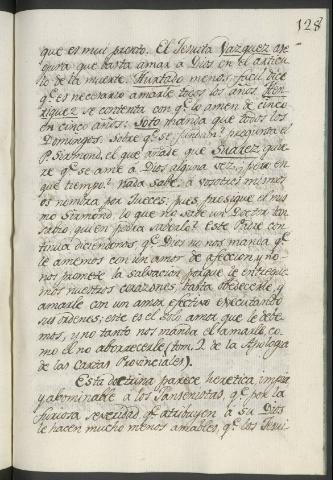 128
que es mui presto. El Jesuita Vazquez ase
gura que basta amar a Dios en el articu
lo de la muerte. Hurtado menos facil dice
q.e es necesario amarle todos los años. Hen
riquez se contenta con q.e lo amen de cinco
en cinco años: Soto manda que todos los
Domingos. Sobre q.e se fundan? pregunta el
P. Sirmond, el que añade que Suarez quie
re q.e se ame a Dios alguna vez; pero en
qué tiempo? nada sabe. A vosotros mismos
os nombra por Jueces: pues prosigue el mis
mo Sirmond, lo que no sabe un Doctor tan
sabio, quien podra saberlo? Este Padre con
tinua diciendonos, q.e Dios no nos manda q.e
le amemos con un amor de afeccion, y no
nos promete la salvacion porque le entregue
mos nuestros corazones, basta obedecerle, y
amarle con un amor efectivo executando
sus ordenes; este es el solo amor que le debe
mos, y no tanto nos manda el amarle, co
mo el no aborrecerle (tom. 2 de la Apologia
de las Cartas Provinciales).
Esta doctrina parece heretica, impia,
y abominable a los Jansenistas, q.e por la
furiosa severidad q.e atribuyen a su Dios
le hacen mucho menos amable, q.e los Jesui